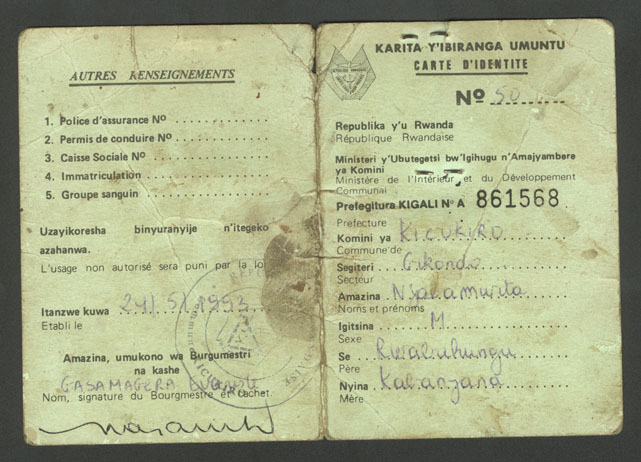 AUTRES RENSEIGNEMENTS
1. Police d'assurance Nº
2. Permis de conduire Nº
3. Caisse Sociale Nº
4. Immatriculation
5. Groupe sanguin
Uzayikoresha binyuranyije n'itegeko
azahanwa.
L'usage non autorisé sera puni par la loi
Itanzwe kuwa 24/5/1993
Etabli le
Amazina, umukono wa Burgumestri
na kashe
GASAMAGERA
Nom, signature du Bourgmestre et cachet.
KARITA Y'IBIRANGA UMUNTU
CARTE D'IDENTITE
Nº 50
Republika y'u Rwanda
République Rwandaise
Ministeri y'Ubutegetsi bw'Igihugu n'Amajyambere
ya Komini
Ministère de l'Intérieur et du Développement
Communal
Prefegitura KIGALI Nº A 861568
Préfecture
Komini ya KICUKIRO
Commune de
Segiteri Gikondo
Secteur
Amazina
Noms et prénoms
Igitsina M
Sexe
Se
Père
Nyina
Mère